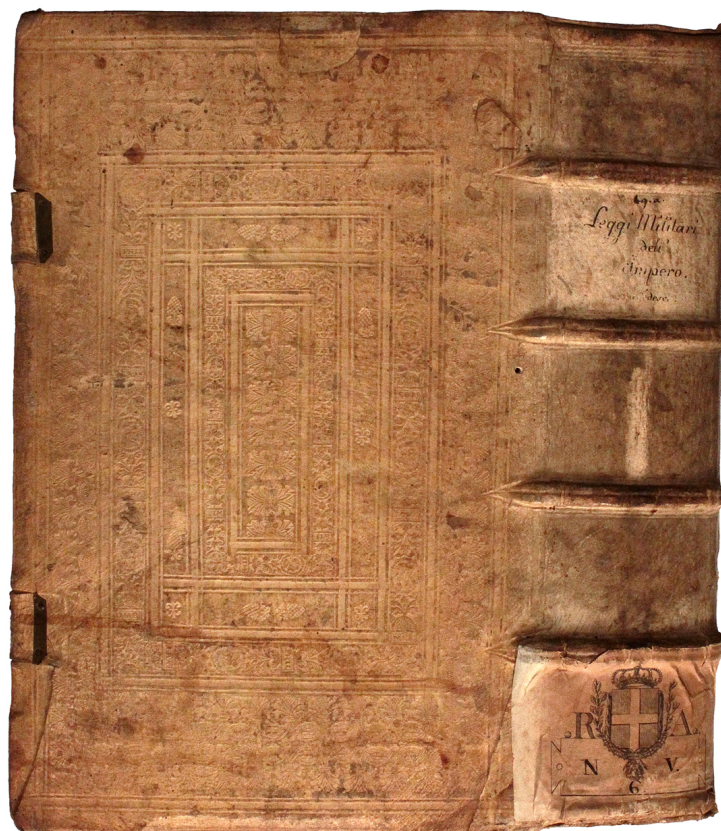 Leggi Militari
dell'
Impero.
R. A.
N V.
6.